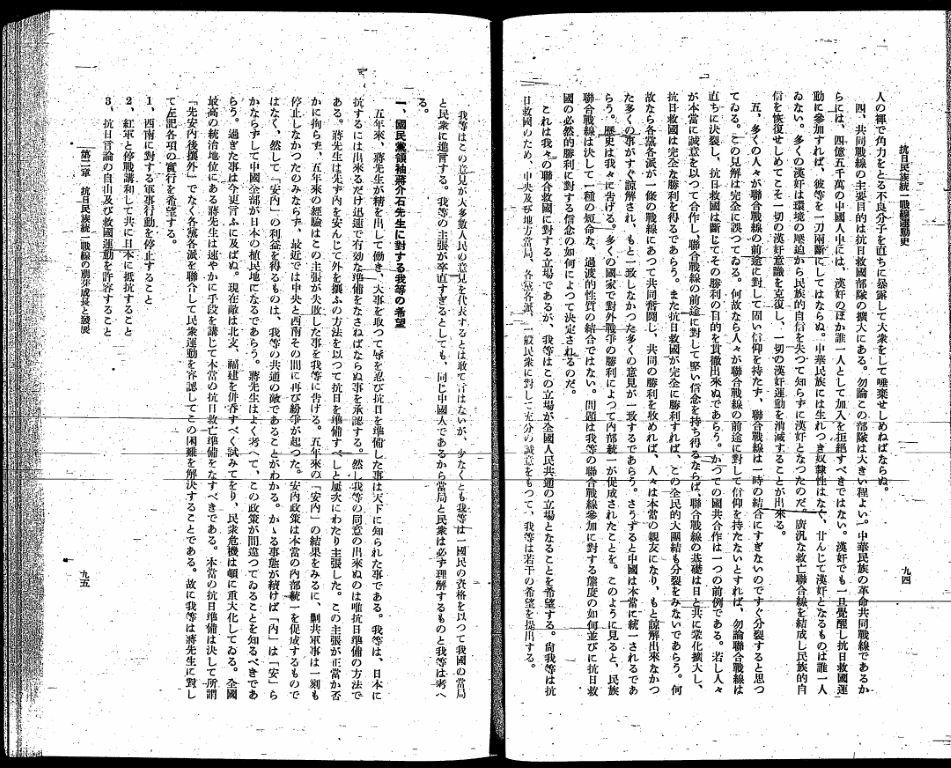 抗日民族統一戰線運動史
九四
人の褌で角力をとる不良分子を直ちに暴露して大衆をして唾棄せしめねばならぬ。
四、共同戰線の主要目的は抗日救國部隊の擴大にある。勿論この部隊は大きい程よい。中華民族の革命共同戰線であるか
らには、四億五千萬の中國人中には、漢奸のほか誰一人として加入を拒絕すべきではない。漢奸でも一旦覺醒し抗日救國運
動に參加すれば、彼等を一刀兩斷にしてはならぬ。中華民族には生れつき奴隷性はなく、甘んじて漢奸となるものは誰一人
ゐない。多くの漢奸は環境の壓迫から民族的自信を失つて知らずに漢奸となつたのだ。廣汎な救亡聯合線を結成し民族的自
信を恢復せしめてこそ一切の漢奸意識を克復し、一切の漢奸運動を消滅することが出來る。
五、多くの人々が聯合戰線の前途に對して固い信仰を持たず、聯合戰線は一時の結合にすぎないのですぐ分裂すると思つ
てゐる。この見解は完全に誤つてゐる。何故なら人々が聯合戰線の前途に對して信仰を持たないとすれば、勿論聯合戰線は
直ちに決裂し、抗日救國は斷じてその勝利の目的を貫徹出來ぬであらう。かつての國共合作は一つの前例である。若し人々
が本當に誠意を以つて合作し、聯合戰線の前途に對して堅い信念を持ち得るならば、聯合戰線の基礎は日と共に鞏化擴大し、
抗日救國は完全な勝利を得るであらう。また抗日救國が完全に勝利すれば、この全民的大團結も分裂をみないであらう。何
故なら各黨各派が一條の戰線にあつて共同奮鬪し、共同の勝利を收めれば、人々は本當の親友になり、もと諒解出來なかつ
た多くの事がすぐ諒解され、もと一致しなかつた多くの意見が一致するであらう。さうすると中國は本當に統一されるであ
らう。歷史は我々に告げる。多くの國家で對外戰爭の勝利によつて內部統一が促成されたことを。このように見ると、民族
聯合戰線は決して一種の短命な、過渡的性質の結合ではない。問題は我等の聯合戰線參加に對する態度の如何並びに抗日救
國の必然的勝利に對する信念の如何によつて決定されるのだ。
これは我々の聯合救國に對する立場であるが、我等はこの立場が全國人民共通の立場となることを希望する。尙我等は抗
日救國のため、中央及び地方當局、各黨各派、一般民衆に對して充分の誠意をもつて、我等は若干の希望を提出する。
我等はこの意見が大多數人民の意見を代表するとは敢て言はないが、少なくとも我等は一國民の資格を以つて我國の當局
と民衆に進言する。我等の主張が卒直すぎるとしても、同じ中國人であるから當局と民衆は必ず理解するものと我等は考へ
る。
一、國民黨領袖蔣介石先生に對する我等の希望
五年來、蔣先生が精を出して働き、大事を取つて辱を忍び抗日を準備した事は天下に知られた事である。我等は、日本に
抗するには出來るだけ迅速で有効な準備をなさねばならぬ事を承認する。然し我等の同意の出來ぬのは唯抗日準備の方法で
ある。蔣先生は先す內を安んじて外を攘ふの方法を以つて抗日を準備すべしと屢次にわたり主張した。この主張が正當か否
かに拘らず、五年來の經驗はこの主張が失敗した事を我等に告げる。五年來の「安內」の結果をみるに、剿共軍事は一刻も
停止しなかつたのみならず、最近では中央と西南その間に再び紛爭が起つた。安內政策は本當の內部統一を促成するもので
はなく、然して「安內」の利益を得るものは、我等の共通の敵であることがわかる。かゝる事態が續けば「內」は「安」ら
かならずして中國全部が日本の植民地になるであらう。蔣先生はよく考へて、この政策が間違つてゐることを知るべきであ
らう。過ぎた事は今更言ふに及ばぬ。現在敵は北支、福建を併呑すべく試みてをり、民衆危機は頓に重大化してゐる。全國
最高の統治地位にある蔣先生は速やかに手段を講じて本當の抗日救亡準備をなすべきである。本當の抗日準備は決して所謂
「先安內後攘外」でなく各黨各派を聯合して民衆運動を容認してこの困難を解決することである。故に我等は蔣先生に對し
て左記各項の實行を希望する。
1、西南に對する軍事行動を停止すること
2、紅軍と停戰講和して共に日本に抵抗すること
3、抗日言論の自由及び救國運動の自由を容許すること
第二章 抗日民族統一戰線の萠芽成長と發展
九五